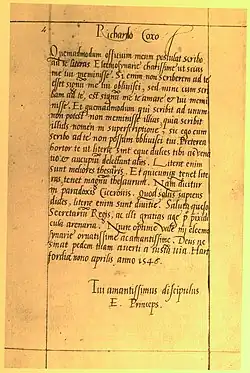 Richardo Coxo
Quemadmodum officium meum postulat scribo
ad te literas Eleemosynarie charissime ut scias
me tui meminisse. Si enim non scriberem ad te
esset signū me tui oblitum, sed nunc cum scri
bam ad te, est signū me te amare et tui memi
nisse. Et quemadmodum qui scribit ad unum
non potest non meminisse illius, quia scribit
illius nomen in superscriptione: sic ego cum
scribo ad te non possum oblivisci tui. Præterea
hortor te ut literæ sint eque dulces tibi ac vena
tio et aucupiū delectant alios. Literæ enim
sunt meliores thesauris. Et quicunque tenet lite
ras, tenet magnū thesaurum. Nam dicitur
in paradoxis Ciceronis. Quod solus sapiens
dives, literæ enim sunt divitiæ. Saluta quæso
Secretariū Regis, ac illi gratias age
cula arenaria. Nunc optime vale mi eleemo
synarie ornatissime ac amantissime. Deus ne
sinat pedem illum averti a iusta via. Hart
fordiæ, nono aprilis, anno 1546.
Tui amantissimus discipulus
E. Princeps.